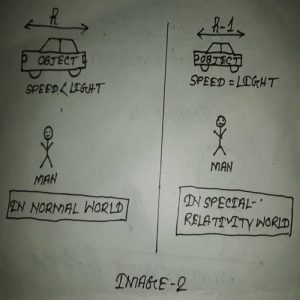 R
OBJECT
SPEED < LIGHT
MAN
IN NORMAL WORLD
R-1
OBJECT
SPEED = LIGHT
MAN
IN SPECIAL-
RELATIVITY WORLD
IMAGE-2